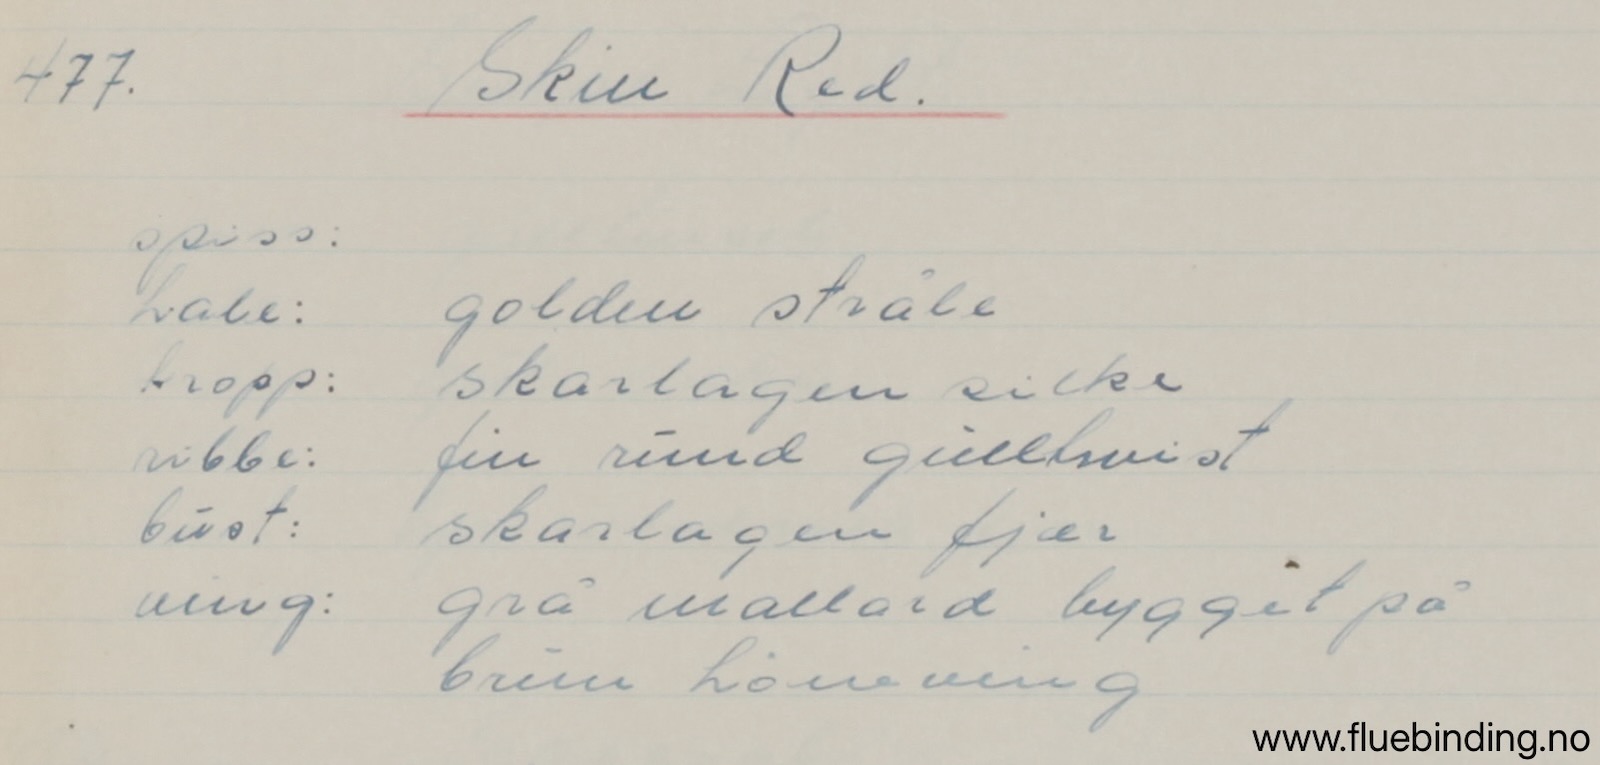 477. Skin Red.
spiss:
hale: golden stråle
kropp: skarlagen silke
ribbe: fin rund gulltvist
bust: skarlagen fjær
ving: grå mallard bygget på
brun høneving
www.fluebinding.no